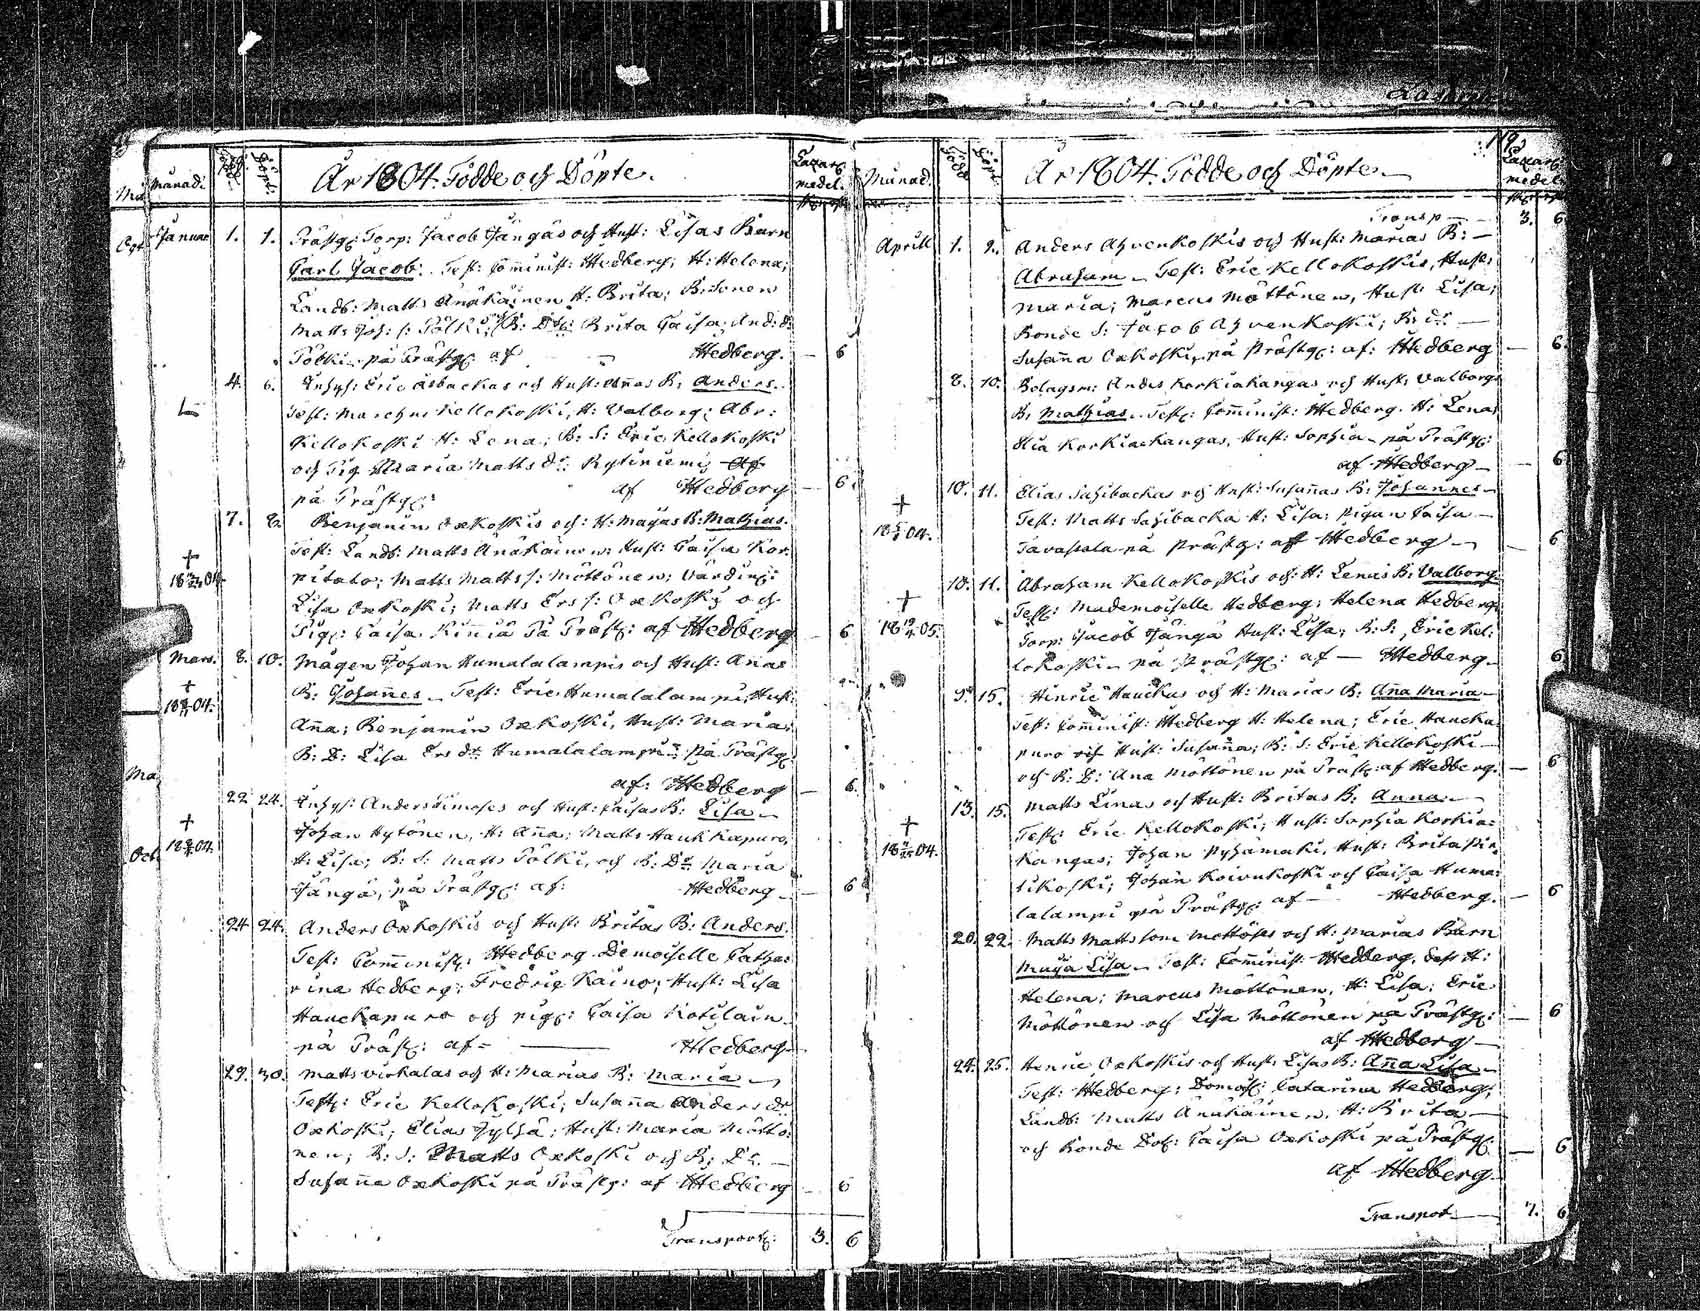 Månad.
Född.
Döpt.
År 1804. Födde och Döpte.
Lazar:
medel.
Januar. 1. 1. Prästg: Torp: Jacob Jängäs och Hust: Lisas Barn
Carl Jacob. Test: Comminist: Hedberg; H: Helena;
Landb: Matts Änäkäinen H: Brita; B: Sonen
Matts Joh: s: Pölki; B: Dr: Brita Caisa, And: dr
Pölki på Prästg: af Hedberg. — 6
4. 6. Inhys: Eric Åsbackas och Hust: Annas B: Anders.
Test: Marcus Kellokoski, H: Valborg; Abr:
Kellokoski H: Lena; B: S: Eric Kellokoski
och Pig Maria Matts dr: Rytiniemi, af
på Prästg: af Hedberg — 6
7. 8. Benjamin Oxkoskis och: H: Majas B: Mathias.
Test: Landb: Matts Änäkäinen: Hust: Caisa Kor
pitalo; Matts Matts s: Möttönen; Värdin:
Lisa Oxkoski; Matts Ers s: Oxkoski och
Pig: Caisa Kinnia På Präst: af Hedberg 6
† 04.
Mars. 8. 10. Mågen Johan Humalalampis och Hust: Annas
B: Johannes. Test: Eric Humalalampi, Hust:
Anna; Benjamin Oxkoski, Hust: Maria;
B: D: Lisa Ers dr Humalalampi på Prästg:
af: Hedberg — 6.
† 04.
22 24. Inhys: Anders Simoses och Hust: Caisas B: Lisa
Johan Hytönen, H: Anna; Matts Hauckapuro,
H: Lisa; B: S: Matts Pölki, och B: Dr Maria
Jängä, på Prästg: af: Hedberg — 6
† 04.
24. 24. Anders Oxkoskis och Hust: Britas B: Anders.
Test: Comminist: Hedberg. Demoiselle Catha:
rina Hedberg; Fredric Kaino; Hust: Lisa
Hauckapuro och pig: Caisa Kotilain
på Präst: af Hedberg
29. 30. Matts Virkalas och H: Marias B: Maria
Test: Eric Kellokoski; Susanna Anders dr
Oxkoski; Elias Jylhä; Hust: Maria Mötto:
nen; B: S: Matts Oxkoski och B: Dr:
Susanna Oxkoski på Prästg: af Hedberg — 6
Transport: 3. 6
Månad.
Född
Döpt
År 1804. Födde och Döpte.
119.
Lazar:
medel.
Transp 3. 6
Aprill 1. 2. Anders Ahvenkoskis och Hust: Marias B:
Abraham. Test: Eric Kellokoskis, Hust:
Maria; Marcus Möttönen, Hust: Lisa;
Bonde S: Jacob Ahvenkoski; B: dr
Susanna Oxkoski på Prästg: af: Hedberg — 6.
8. 10. Bolagsm: Anders Korkiakangas och Hust: Valborgs
B: Mathias. Test: Comminist: Hedberg. H: Lena
Elia Korkiakangas, Hust: Sophia på Prästg:
af Hedberg — 6
10. 11. Elias Sahibackas och Hust: Susannas B: Johannes
Test: Matts Sahibacka H: Lisa; pigan Caisa
Tavastola på Prästg: af Hedberg — 6
† 04.
10. 11. Abraham Kellokoskis och: H: Lenas B: Valborg
Test: Mademoiselle Hedberg; Helena Hedberg
Torp: Jacob Jängä Hust: Lisa; B: S: Eric Kel:
lokoski på Prästg: af — Hedberg — 6
† 05.
9. 15. Hinric Hauckas och H: Marias B: Anna Maria
Test: Comminist: Hedberg H: Helena; Eric Haucka
puro och Hust: Susanna; B: S: Eric Kellokoski
och B: D: Ana Möttönen på Präst: af Hedberg. — 6
13. 15. Matts Linas och Hust: Britas B: Anna.
Test: Eric Kellokoski; Hust: Sophia Korkia:
kangas; Johan Pyhämäki, Hust: Brita Pis
sikoski; Johan Koivukoski och Caisa Huma:
lalampi på Prästg: af — Hedberg. — 6
† 04.
20. 22. Matts Mattsson Möttöses och H: Marias Barn
Maija Lisa. Test: Comminist: Hedberg, dess H:
Helena; Marcus Möttönen, H: Lisa; Eric
Möttönen och Lisa Möttönen på Prästg: — 6
af Hedberg
24. 25. Henric Oxkoskis och Hust: Lisas B: Anna Lisa
Test: Hedberg; Demois: Catarina Hedberg;
Landb: Matts Änäkäinen, H: Brita
och Bonde Dot: Caisa Oxkoski på Prästg: — 6
af Hedberg
Transport 7. 6